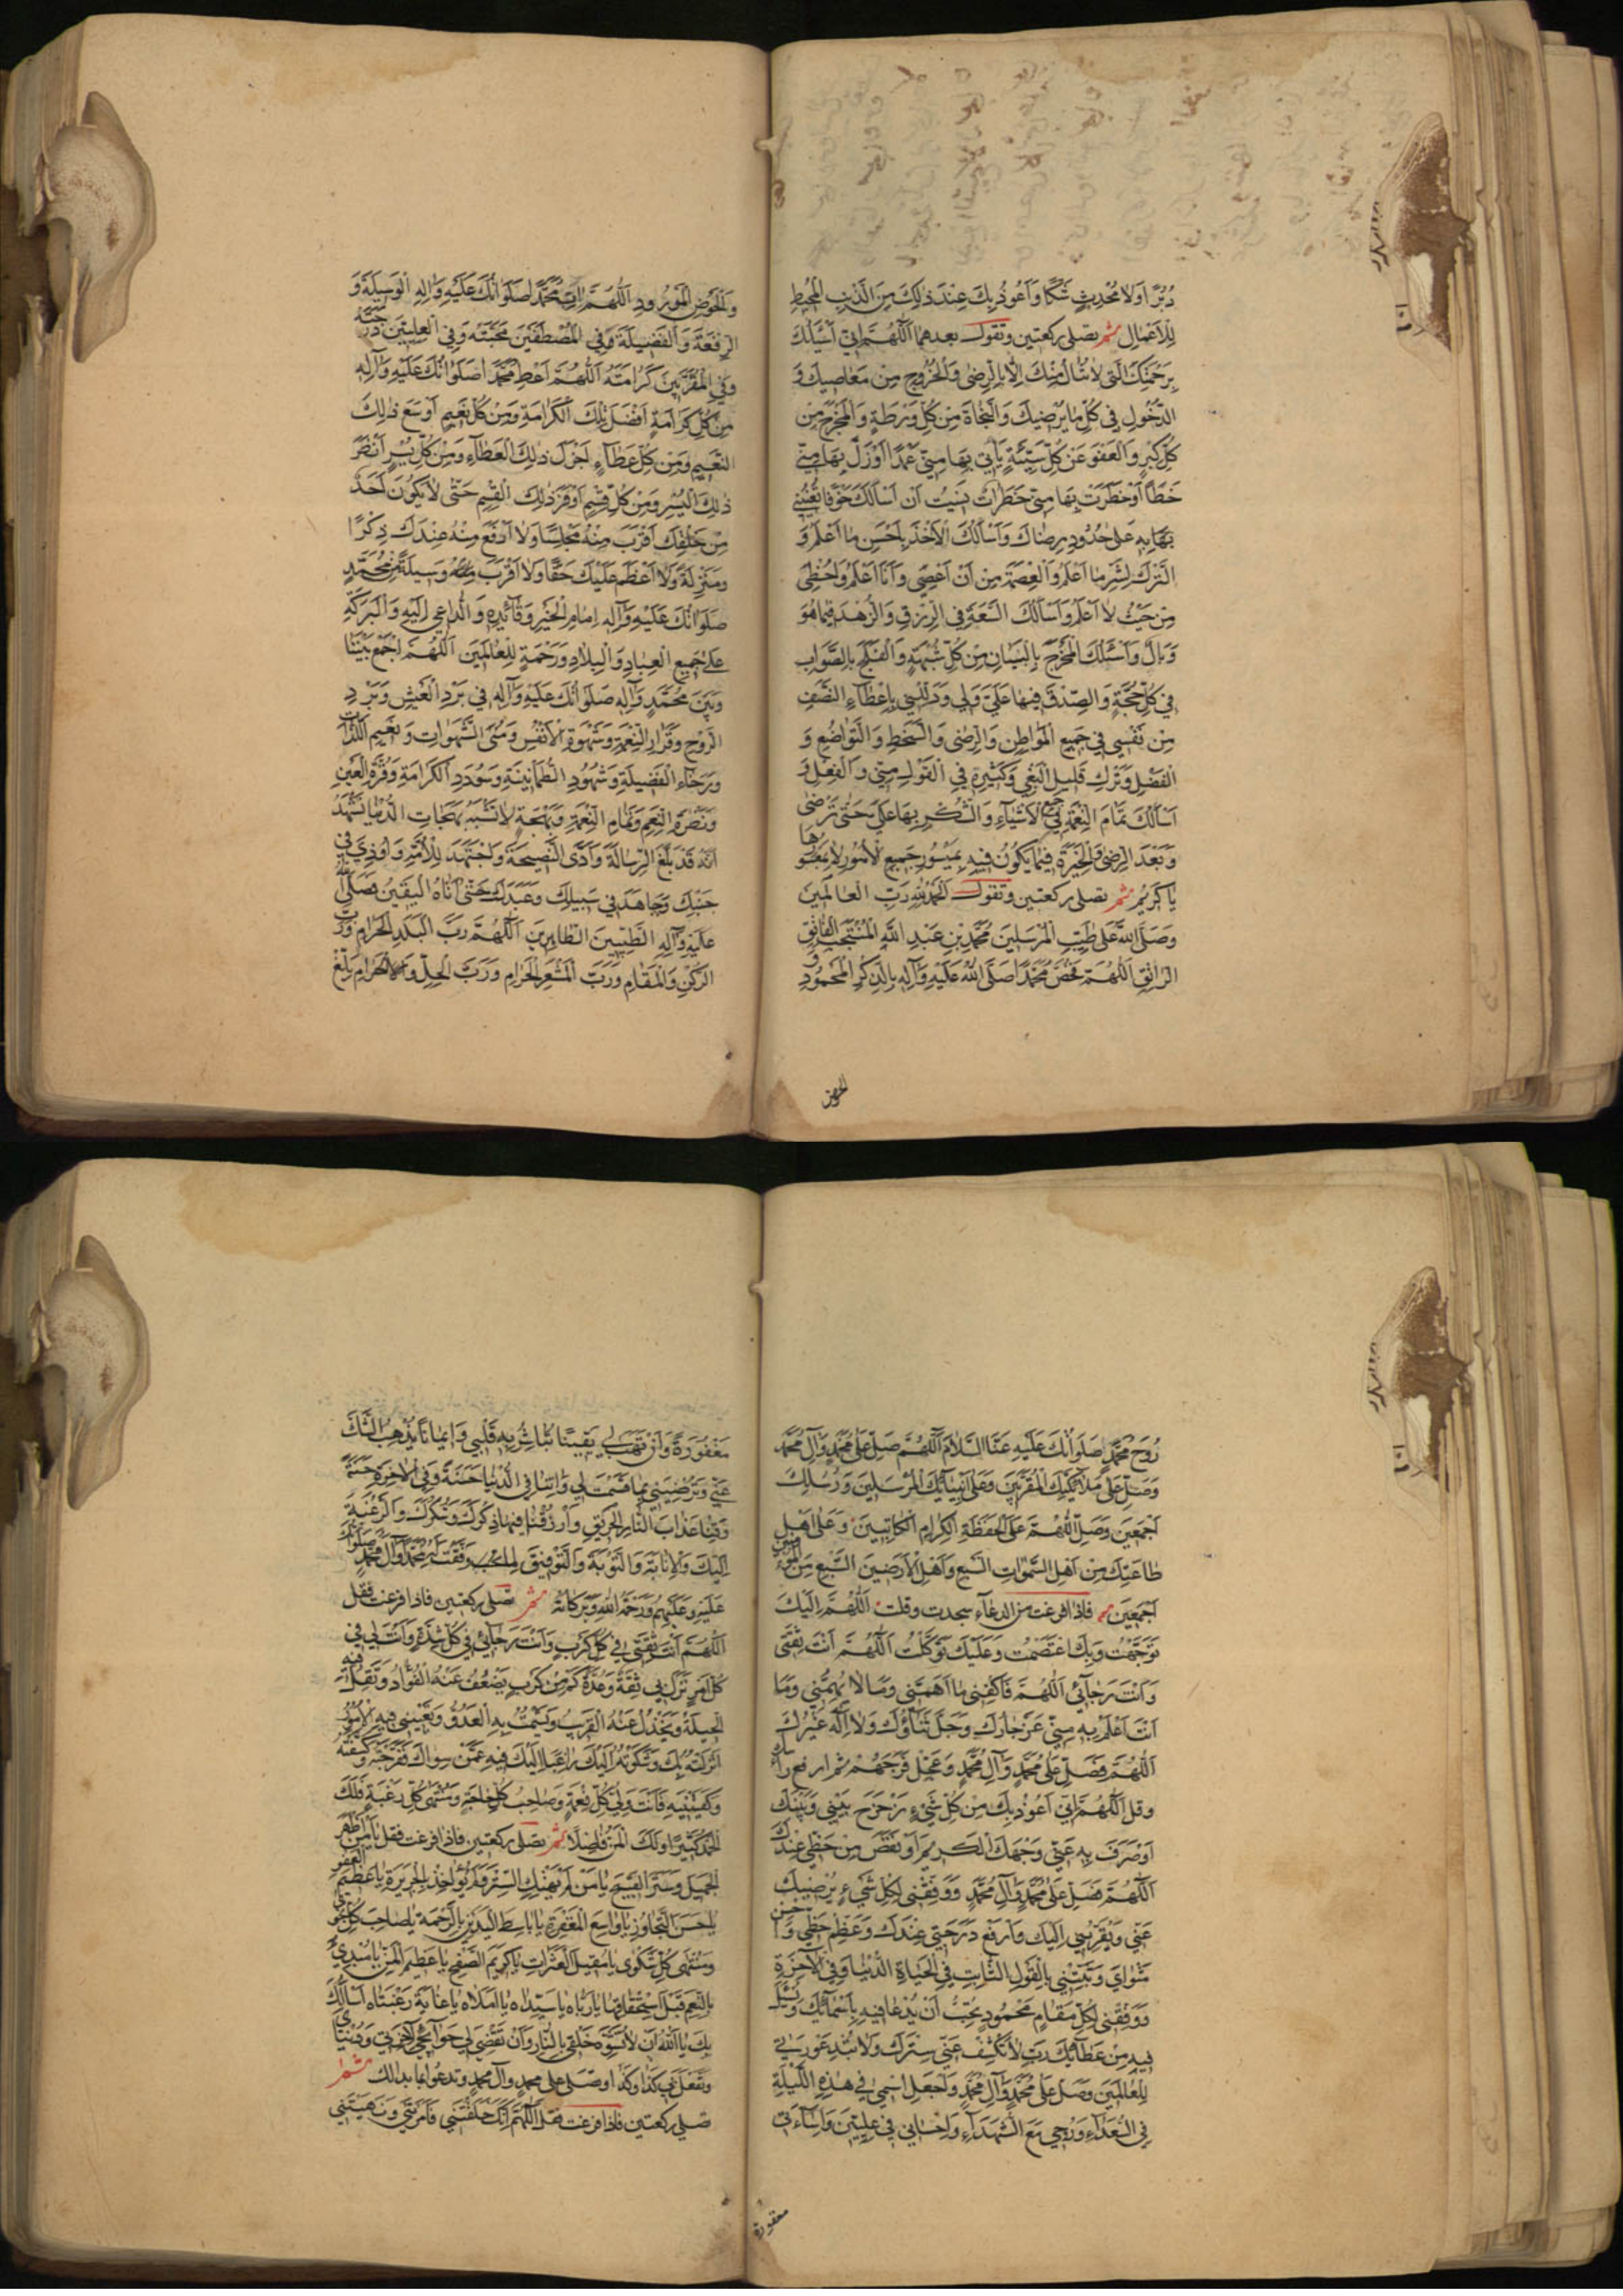 دُبُرًا وَلَا مُحْدِثٍ شَكًّا وَأَعُوذُ بِكَ عِنْدَ ذٰلِكَ مِنَ الذَّنْبِ الْمُحِيطِ
لِلْأَعْمَالِ ثم تصلى ركعتين وتقول بعدهما اللّٰهُمَّ إِنِّي أَسْئَلُكَ
بِرَحْمَتِكَ الَّتِي لَا تُنَالُ مِنْكَ إِلَّا بِالرِّضٰى وَالْخُرُوجِ مِنْ مَعَاصِيكَ وَ
الدُّخُولِ فِي كُلِّ مَا يُرْضِيكَ وَالنَّجَاةَ مِنْ كُلِّ وَرْطَةٍ وَالْمَخْرَجَ مِنْ
كُلِّ كِبْرٍ وَالْعَفْوَ عَنْ كُلِّ سَيِّئَةٍ يَأْتِي بِهَا مِنِّي عَمْدًا أَوْ زَلَّ بِهَا مِنِّي
خَطَأً أَوْ خَطَرَتْ بِهَا مِنِّي خَطَرَاتٌ نَسِيتُ أَنْ أَسْأَلَكَ خَوْفًا تُعِينُنِي
بِهِ عَلَى حُدُودِ رِضَاكَ وَأَسْأَلُكَ الْأَخْذَ بِأَحْسَنِ مَا أَعْلَمُ وَ
التَّرْكَ لِشَرِّ مَا أَعْلَمُ وَالْعِصْمَةَ مِنْ أَنْ أَعْصِيَ وَأَنَا أَعْلَمُ وَأُخْطِئَ
مِنْ حَيْثُ لَا أَعْلَمُ وَأَسْأَلُكَ السَّعَةَ فِي الرِّزْقِ وَالزُّهْدَ فِيمَا هُوَ
وَبَالٌ وَأَسْئَلُكَ الْمَخْرَجَ بِالْبَيَانِ مِنْ كُلِّ شُبْهَةٍ وَالْفَلَجَ بِالصَّوَابِ
فِي كُلِّ حُجَّةٍ وَالصِّدْقَ فِيهَا عَلَيَّ وَلِي وَذَلِّلْنِي بِإِعْطَاءِ النَّصَفِ
مِنْ نَفْسِي فِي جَمِيعِ الْمَوَاطِنِ وَالرِّضٰى وَالسَّخَطِ وَالتَّوَاضُعِ وَ
الْفَضْلِ وَتَرْكِ قَلِيلِ الْبَغْيِ وَكَثِيرِهِ فِي الْقَوْلِ مِنِّي وَالْفِعْلِ وَ
أَسْأَلُكَ تَمَامَ النِّعْمَةِ فِي جَمِيعِ الْأَشْيَاءِ وَالشُّكْرِ بِهَا عَلَيَّ حَتّٰى تَرْضٰى
وَبَعْدَ الرِّضٰى وَالْخِيَرَةَ فِيمَا يَكُونُ فِيهِ بِمَيْسُورِ جَمِيعِ الْأُمُورِ لَا بِمَعْسُورِهَا
يَا كَرِيمُ ثم تصلى ركعتين وتقول الْحَمْدُ لِلّٰهِ رَبِّ الْعَالَمِينَ
وَصَلَّى اللّٰهُ عَلٰى طَيِّبِ الْمُرْسَلِينَ مُحَمَّدِ بْنِ عَبْدِ اللّٰهِ الْمُنْتَجَبِ الْفَاتِقِ
الرَّاتِقِ اللّٰهُمَّ فَخُصَّ مُحَمَّدًا صَلَّى اللّٰهُ عَلَيْهِ وَآلِهِ بِالذِّكْرِ الْمَحْمُودِ وَ
الحوض
وَالْحَوْضِ الْمَوْرُودِ اللّٰهُمَّ اٰتِ مُحَمَّدًا صَلَوَاتُكَ عَلَيْهِ وَآلِهِ الْوَسِيلَةَ وَ
الرِّفْعَةَ وَالْفَضِيلَةَ وَفِي الْمُصْطَفَيْنَ مَحَبَّتَهُ وَفِي الْعِلِّيِّينَ دَرَجَتَهُ
وَفِي الْمُقَرَّبِينَ كَرَامَتَهُ اللّٰهُمَّ أَعْطِ مُحَمَّدًا صَلَوَاتُكَ عَلَيْهِ وَآلِهِ
مِنْ كُلِّ كَرَامَةٍ أَفْضَلَ تِلْكَ الْكَرَامَةِ وَمِنْ كُلِّ نَعِيمٍ أَوْسَعَ ذٰلِكَ
النَّعِيمِ وَمِنْ كُلِّ عَطَاءٍ أَجْزَلَ ذٰلِكَ الْعَطَاءِ وَمِنْ كُلِّ يُسْرٍ أَنْضَرَ
ذٰلِكَ الْيُسْرِ وَمِنْ كُلِّ قِسْمٍ أَوْفَرَ ذٰلِكَ الْقِسْمِ حَتّٰى لَا يَكُونَ أَحَدٌ
مِنْ خَلْقِكَ أَقْرَبَ مِنْهُ مَجْلِسًا وَلَا أَرْفَعَ مِنْهُ عِنْدَكَ ذِكْرًا
وَمَنْزِلَةً وَلَا أَعْظَمَ عَلَيْكَ حَقًّا وَلَا أَقْرَبَ وَسِيلَةً مِنْ مُحَمَّدٍ
صَلَوَاتُكَ عَلَيْهِ وَآلِهِ إِمَامِ الْخَيْرِ وَقَائِدِهِ وَالدَّاعِي إِلَيْهِ وَالْبَرَكَةِ
عَلٰى جَمِيعِ الْعِبَادِ وَالْبِلَادِ وَرَحْمَةٍ لِلْعَالَمِينَ اللّٰهُمَّ اجْمَعْ بَيْنَنَا
وَبَيْنَ مُحَمَّدٍ وَآلِهِ صَلَوَاتُكَ عَلَيْهِ وَآلِهِ فِي بَرْدِ الْعَيْشِ وَبَرْدِ
الرَّوْحِ وَقَرَارِ النِّعْمَةِ وَشَهْوَةِ الْأَنْفُسِ وَمُنَى الشَّهَوَاتِ وَنَعِيمِ اللَّذَّاتِ
وَرَخَاءِ الْفَضِيلَةِ وَشُهُودِ الطُّمَأْنِينَةِ وَسُودَدِ الْكَرَامَةِ وَقُرَّةِ الْعَيْنِ
وَنَضْرَةِ النَّعِيمِ وَتَمَامِ النِّعْمَةِ وَبَهْجَةٍ لَا تُشْبِهُ بَهَجَاتِ الدُّنْيَا نَشْهَدُ
أَنَّهُ قَدْ بَلَّغَ الرِّسَالَةَ وَأَدَّى النَّصِيحَةَ وَاجْتَهَدَ لِلْأُمَّةِ وَأُوذِيَ فِي
جَنْبِكَ وَجَاهَدَ فِي سَبِيلِكَ وَعَبَدَكَ حَتّٰى أَتَاهُ الْيَقِينُ فَصَلَّى اللّٰهُ
عَلَيْهِ وَآلِهِ الطَّيِّبِينَ الطَّاهِرِينَ اللّٰهُمَّ رَبَّ الْبَلَدِ الْحَرَامِ وَرَبَّ
الرُّكْنِ وَالْمَقَامِ وَرَبَّ الْمَشْعَرِ الْحَرَامِ وَرَبَّ الْحِلِّ وَالْحَرَامِ بَلِّغْ
رُوحَ مُحَمَّدٍ صَلَوَاتُكَ عَلَيْهِ عَنَّا السَّلَامَ اللّٰهُمَّ صَلِّ عَلٰى مُحَمَّدٍ وَآلِ مُحَمَّدٍ
وَصَلِّ عَلٰى مَلَائِكَتِكَ الْمُقَرَّبِينَ وَعَلٰى أَنْبِيَائِكَ الْمُرْسَلِينَ وَرُسُلِكَ
أَجْمَعِينَ وَصَلِّ اللّٰهُمَّ عَلَى الْحَفَظَةِ الْكِرَامِ الْكَاتِبِينَ وَعَلٰى أَهْلِ
طَاعَتِكَ مِنْ أَهْلِ السَّمٰوَاتِ السَّبْعِ وَأَهْلِ الْأَرَضِينَ السَّبْعِ مِنَ الْمُؤْمِنِينَ
أَجْمَعِينَ فاذا فرغت من الدعاء سجدت وقلت اللّٰهُمَّ إِلَيْكَ
تَوَجَّهْتُ وَبِكَ اعْتَصَمْتُ وَعَلَيْكَ تَوَكَّلْتُ اللّٰهُمَّ أَنْتَ ثِقَتِي
وَأَنْتَ رَجَائِي اللّٰهُمَّ فَاكْفِنِي مَا أَهَمَّنِي وَمَا لَا يُهِمُّنِي وَمَا
أَنْتَ أَعْلَمُ بِهِ مِنِّي عَزَّ جَارُكَ وَجَلَّ ثَنَاؤُكَ وَلَا إِلٰهَ غَيْرُكَ
اللّٰهُمَّ فَصَلِّ عَلٰى مُحَمَّدٍ وَآلِ مُحَمَّدٍ وَعَجِّلْ فَرَجَهُمْ ثم ارفع رأسك
وقل اللّٰهُمَّ إِنِّي أَعُوذُ بِكَ مِنْ كُلِّ شَيْءٍ زَحْزَحَ بَيْنِي وَبَيْنَكَ
أَوْ صَرَفَ بِهِ عَنِّي وَجْهَكَ الْكَرِيمَ أَوْ نَقَصَ مِنْ حَظِّي عِنْدَكَ
اللّٰهُمَّ فَصَلِّ عَلٰى مُحَمَّدٍ وَآلِ مُحَمَّدٍ وَوَفِّقْنِي لِكُلِّ شَيْءٍ يُرْضِيكَ
عَنِّي وَيُقَرِّبُنِي إِلَيْكَ وَارْفَعْ دَرَجَتِي عِنْدَكَ وَعَظِّمْ حَظِّي وَأَحْسِنْ
مَثْوَايَ وَثَبِّتْنِي بِالْقَوْلِ الثَّابِتِ فِي الْحَيَاةِ الدُّنْيَا وَفِي الْآخِرَةِ
وَوَفِّقْنِي لِكُلِّ مَقَامٍ مَحْمُودٍ تُحِبُّ أَنْ تُدْعَا فِيهِ بِأَسْمَائِكَ وَتُسْئَلَ
فِيهِ مِنْ عَطَائِكَ رَبِّ لَا تَكْشِفْ عَنِّي سِتْرَكَ وَلَا تُبْدِ عَوْرَتِي
لِلْعَالَمِينَ وَصَلِّ عَلٰى مُحَمَّدٍ وَآلِ مُحَمَّدٍ وَاجْعَلِ اسْمِي فِي هٰذِهِ اللَّيْلَةِ
فِي السُّعَدَاءِ وَرُوحِي مَعَ الشُّهَدَاءِ وَإِحْسَانِي فِي عِلِّيِّينَ وَإِسَاءَتِي
مغفورة
مَغْفُورَةً وَأَنْ تَهَبَ لِي يَقِينًا تُبَاشِرُ بِهِ قَلْبِي وَإِيمَانًا يُذْهِبُ الشَّكَّ
عَنِّي وَتُرْضِيَنِي بِمَا قَسَمْتَ لِي وَآتِنَا فِي الدُّنْيَا حَسَنَةً وَفِي الْآخِرَةِ حَسَنَةً
وَقِنَا عَذَابَ النَّارِ الْحَرِيقِ وَارْزُقْنَا فِيهَا ذِكْرَكَ وَشُكْرَكَ وَالرَّغْبَةَ
إِلَيْكَ وَالْإِنَابَةَ وَالتَّوْبَةَ وَالتَّوْفِيقَ لِمَا وَفَّقْتَ لَهُ مُحَمَّدًا وَآلَ مُحَمَّدٍ صَلَوَاتُكَ
عَلَيْهِ وَعَلَيْهِمْ وَرَحْمَةُ اللّٰهِ وَبَرَكَاتُهُ ثم تصلى ركعتين فاذا فرغت فقل
اللّٰهُمَّ أَنْتَ ثِقَتِي فِي كُلِّ كَرْبٍ وَأَنْتَ رَجَائِي فِي كُلِّ شِدَّةٍ وَأَنْتَ لِي فِي
كُلِّ أَمْرٍ نَزَلَ بِي ثِقَةٌ وَعُدَّةٌ كَمْ مِنْ كَرْبٍ يَضْعُفُ عَنْهُ الْفُؤَادُ وَتَقِلُّ فِيهِ
الْحِيلَةُ وَيَخْذُلُ عَنْهُ الْقَرِيبُ وَيَشْمَتُ بِهِ الْعَدُوُّ وَتُعْيِينِي فِيهِ الْأُمُورُ
أَنْزَلْتُهُ بِكَ وَشَكَوْتُهُ إِلَيْكَ رَاغِبًا إِلَيْكَ فِيهِ عَمَّنْ سِوَاكَ فَفَرَّجْتَهُ وَكَشَفْتَهُ
وَكَفَيْتَنِيهِ فَأَنْتَ وَلِيُّ كُلِّ نِعْمَةٍ وَصَاحِبُ كُلِّ حَاجَةٍ وَمُنْتَهٰى كُلِّ رَغْبَةٍ فَلَكَ
الْحَمْدُ كَثِيرًا وَلَكَ الْمَنُّ فَاضِلًا ثم تصلى ركعتين فاذا فرغت فقل يَا مَنْ أَظْهَرَ
الْجَمِيلَ وَسَتَرَ الْقَبِيحَ يَا مَنْ لَمْ يَهْتِكِ السِّتْرَ وَلَمْ يُؤَاخِذْ بِالْجَرِيرَةِ يَا عَظِيمَ الْعَفْوِ
يَا حَسَنَ التَّجَاوُزِ يَا وَاسِعَ الْمَغْفِرَةِ يَا بَاسِطَ الْيَدَيْنِ بِالرَّحْمَةِ يَا صَاحِبَ كُلِّ نَجْوٰى
وَمُنْتَهٰى كُلِّ شَكْوٰى يَا مُقِيلَ الْعَثَرَاتِ يَا كَرِيمَ الصَّفْحِ يَا عَظِيمَ الْمَنِّ يَا مُبْتَدِئَ
بِالنِّعَمِ قَبْلَ اسْتِحْقَاقِهَا يَا رَبَّاهُ يَا سَيِّدَاهُ يَا أَمَلَاهُ يَا غَايَةَ رَغْبَتَاهُ أَسْأَلُكَ
بِكَ يَا اللّٰهُ أَنْ لَا تُشَوِّهَ خَلْقِي بِالنَّارِ وَأَنْ تَقْضِيَ لِي حَوَائِجَ آخِرَتِي وَدُنْيَايَ
وَتَفْعَلَ بِي كَذَا وَكَذَا وتصلى على محمد وآل محمد وتدعوا بما بدالك ثم
تصلى ركعتين فاذا فرغت فقل اللّٰهُمَّ إِنَّكَ خَلَقْتَنِي فَأَمَرْتَنِي وَنَهَيْتَنِي